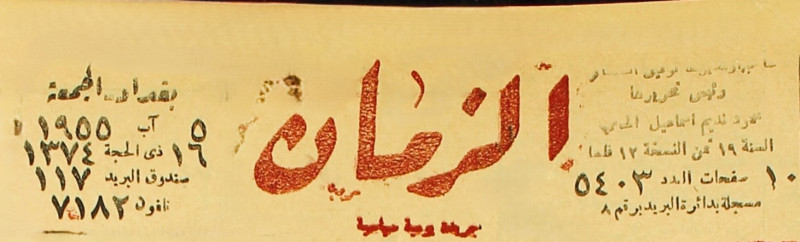 صاحبها ومديرها توفيق السمعاني
ورئيس تحريرها
محمود نديم اسماعيل
السنة ١٩ ثمن النسخة ١٢ فلسا
١٠ صفحات العدد ٥٤٠٣
مسجلة بدائرة البريد برقم ٨
الزمان
جريدة يومية سياسية
بغداد الجمعة
٥ آب ١٩٥٥
١٦ ذى الحجة ١٣٧٤
صندوق البريد ١١٧
تلفون ٧١٨٢